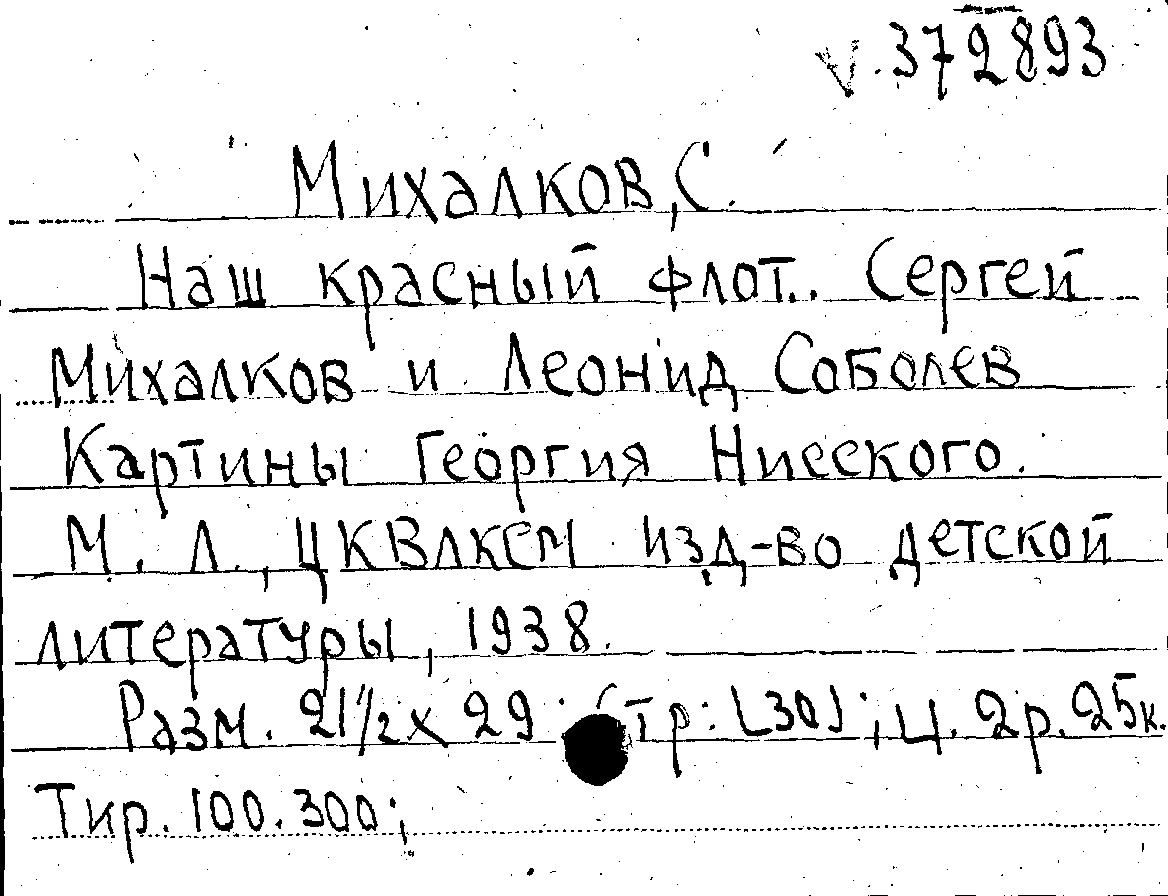 V. 372893
Михалков, С.
Наш красный флот. Сергей
Михалков и Леонид Соболев
Картины Георгия Нисского.
М. Л., ЦКВЛКСМ изд-во детской
литературы, 1938.
Разм. 21 1/2 х 29 Стр: [30]; ц. 2р. 25к.
Тир. 100.300;